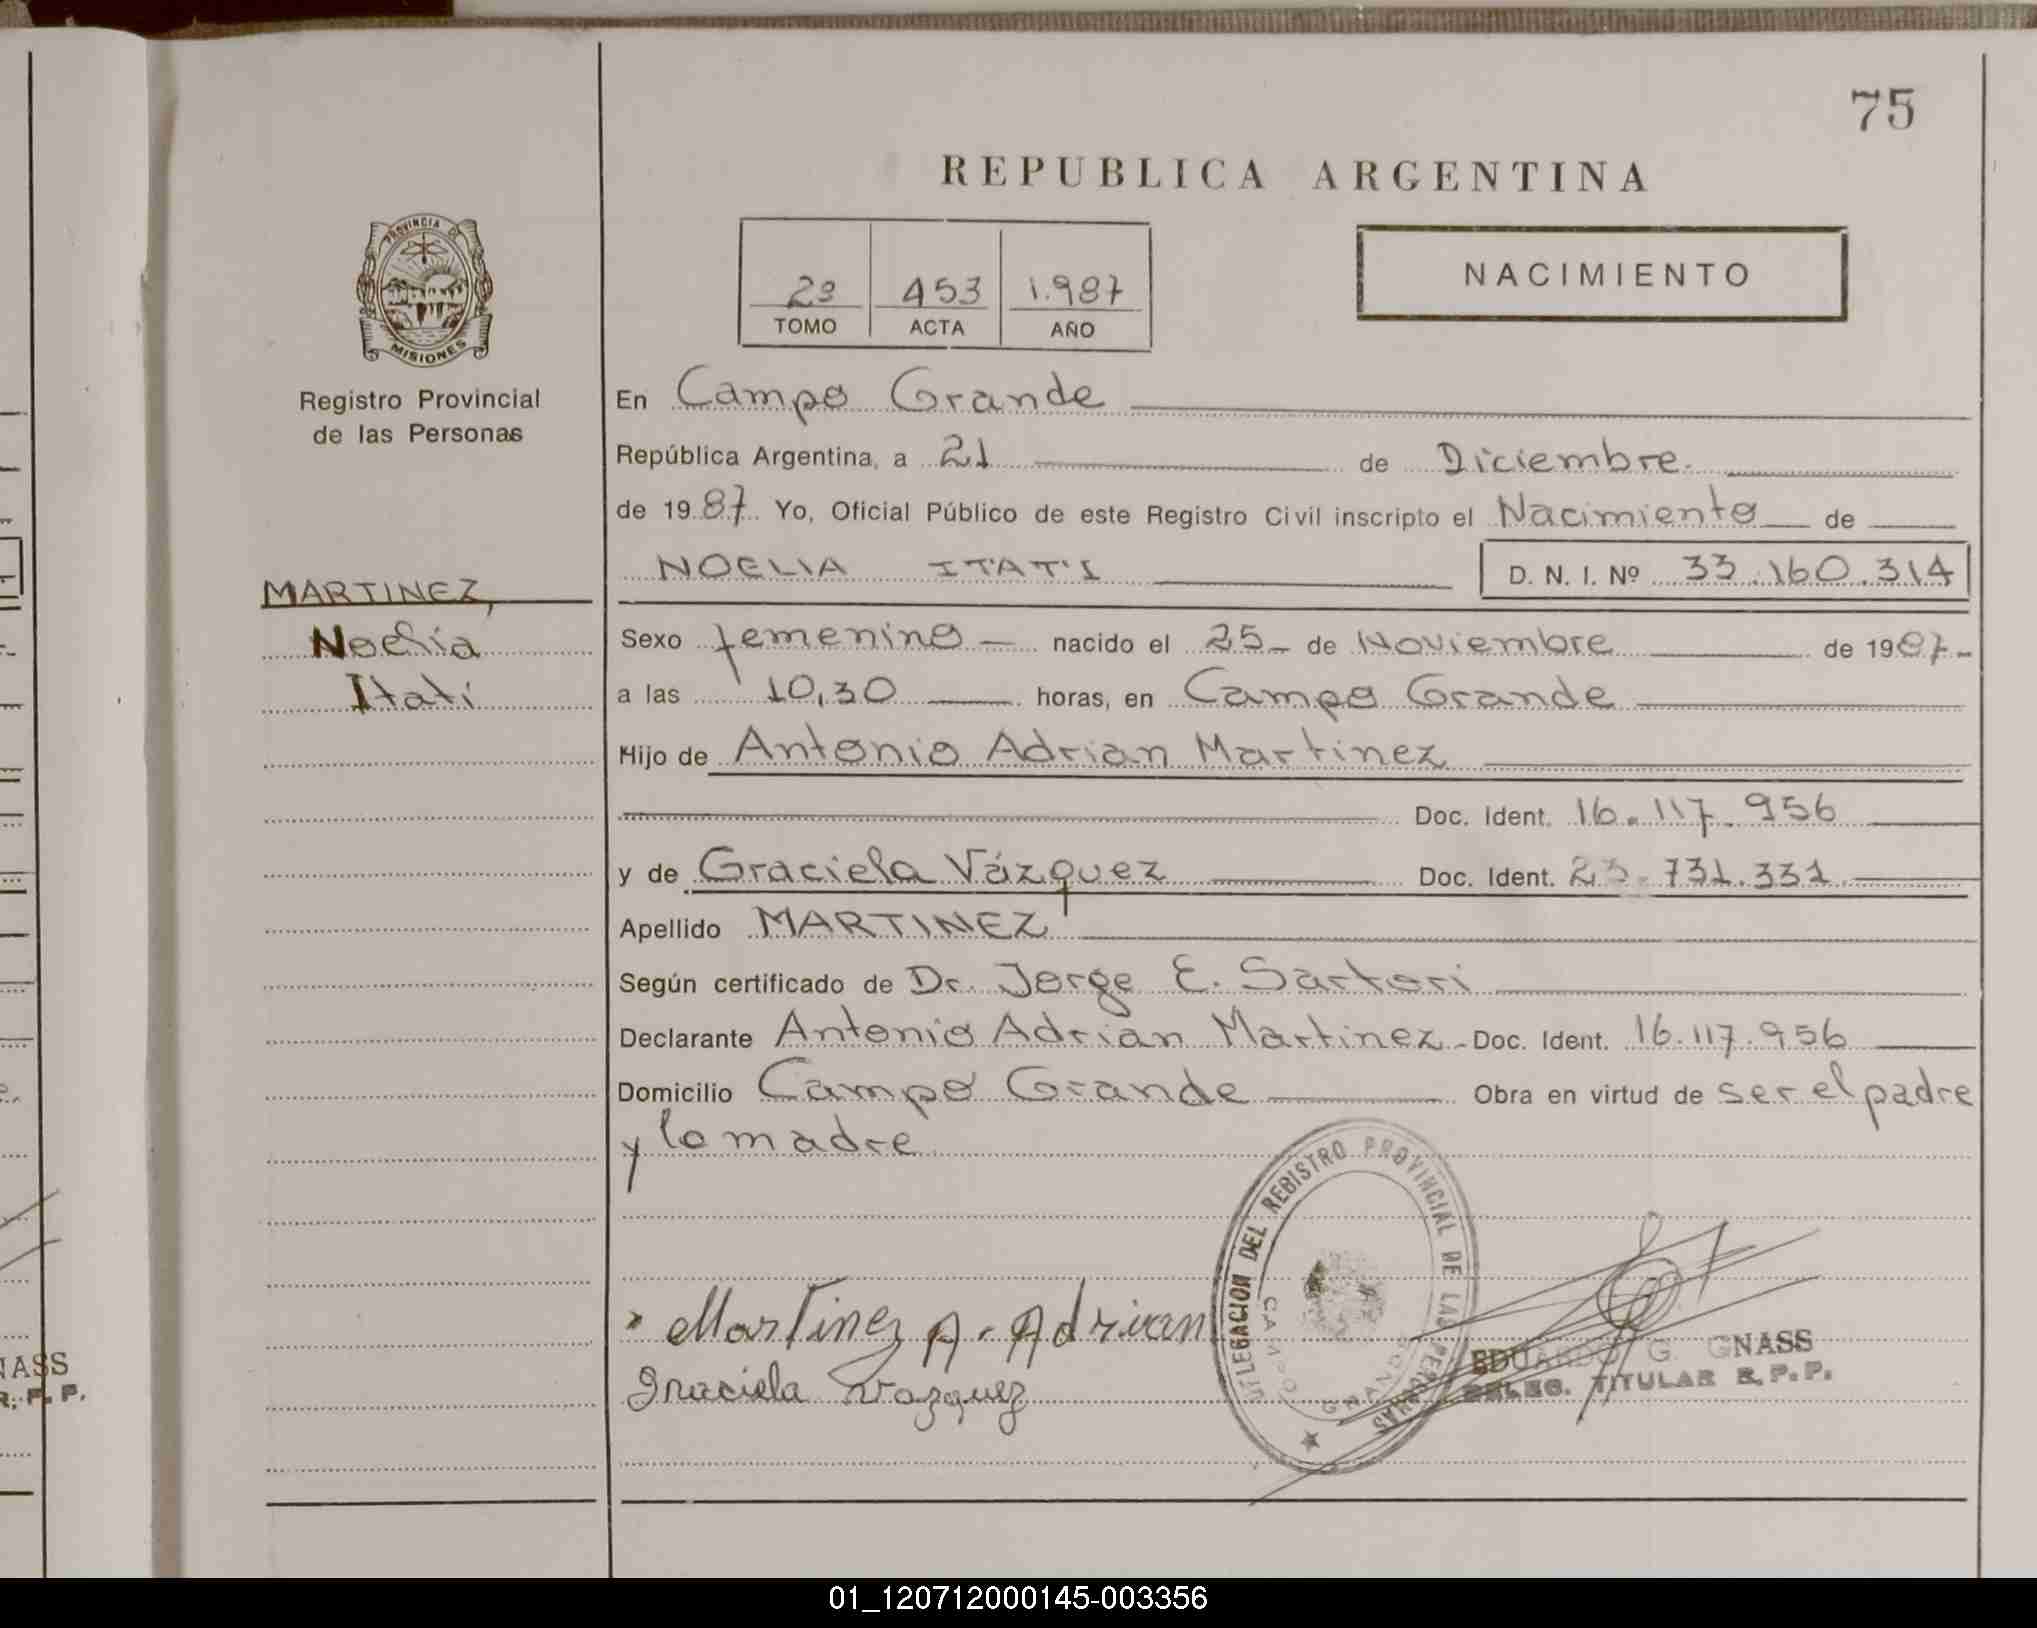 75
REPUBLICA ARGENTINA
PROVINCIA DE
MISIONES
Registro Provincial
de las Personas
2º 453 1.987
TOMO ACTA AÑO
NACIMIENTO
En Campo Grande
República Argentina, a 21 de Diciembre
de 1987 Yo, Oficial Público de este Registro Civil inscripto el Nacimiento de
NOELIA ITATI D. N. I. Nº 33.160.314
MARTINEZ,
Noelia
Itatí
Sexo femenino nacido el 25 de Noviembre de 1987
a las 10,30 horas, en Campo Grande
Hijo de Antonio Adrian Martinez
Doc. Ident. 16.117.956
y de Graciela Vázquez Doc. Ident. 23.731.331
Apellido MARTINEZ
Según certificado de Dr. Jorge E. Sartori
Declarante Antonio Adrian Martinez Doc. Ident. 16.117.956
Domicilio Campo Grande Obra en virtud de ser el padre
y la madre
DELEGACION DEL REGISTRO PROVINCIAL DE LAS PERSONAS
CAMPO GRANDE
Martinez A. Adrian
Graciela Vazquez
EDUARDO G. GNASS
DELEG. TITULAR R.P.P.
NASS
R.P.P.
01_120712000145-003356